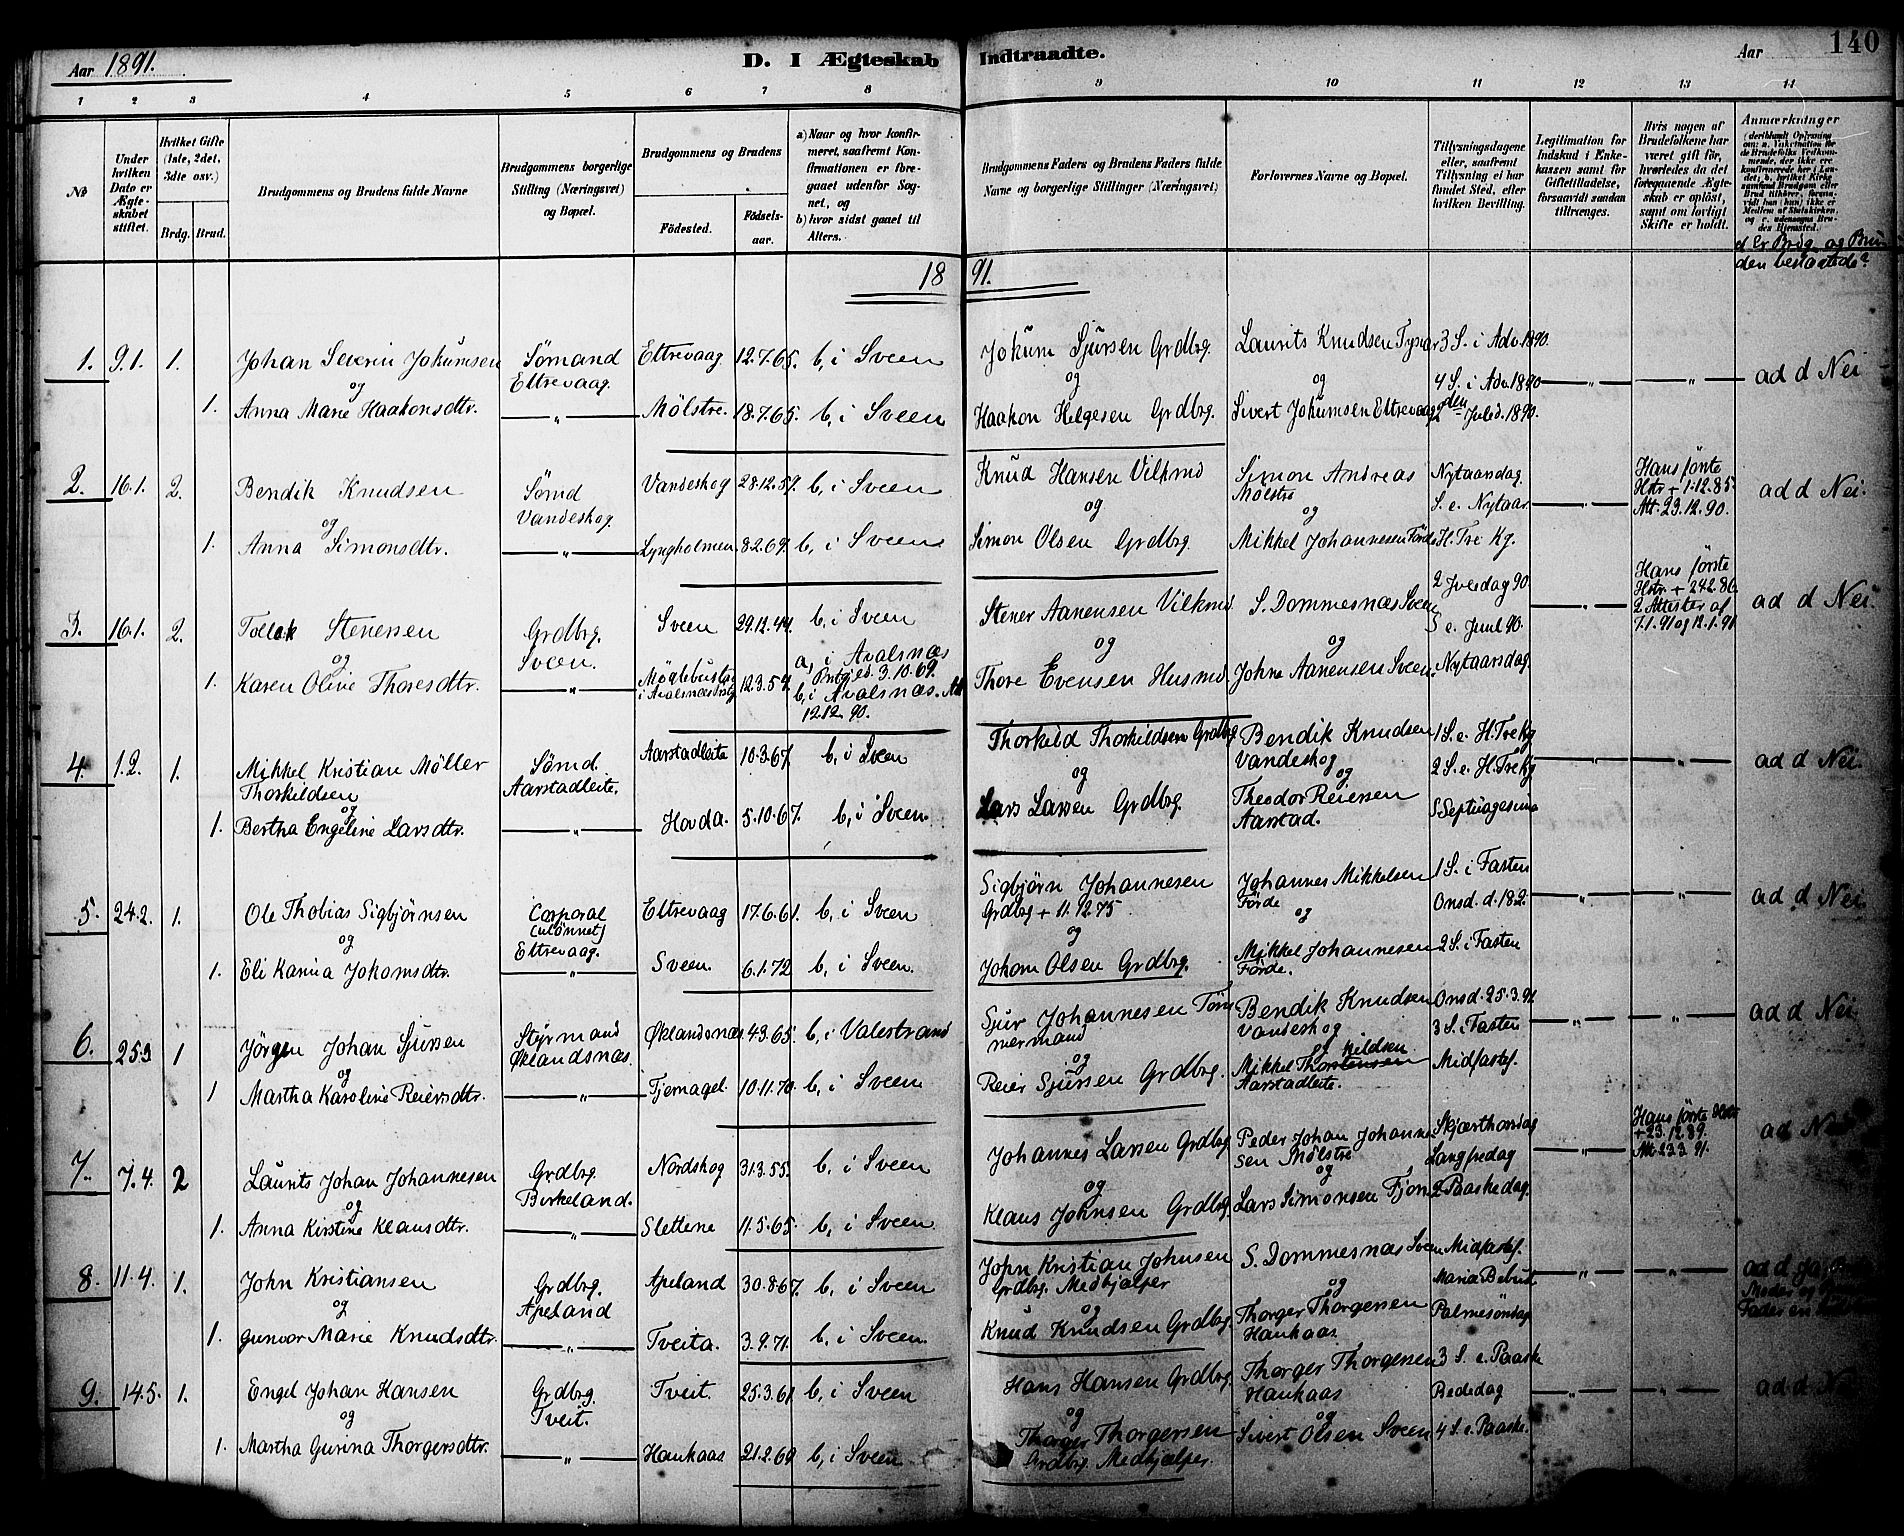 Aar 1891.
D. I Ægteskab Indtraadte.
Aar 140
1 2 3 4 5 6 7 8 9 10 11 12 13 14
No
Under hvilken Dato er Ægteskabet stiftet.
Hvilket Gifte (1ste, 2det, 3dte osv.)
Brdg. Brud.
Brudgommens og Brudens fulde Navne
Brudgommens borgerlige Stilling (Næringsvei) og Bopæl.
Brudgommens og Brudens
Fødested. Fødselsaar.
a) Naar og hvor konfirmeret, saafremt Konfirmationen er foregaaet udenfor Sognet, og
b) hvor sidst gaaet til Alters.
Brudgommens Faders og Brudens Faders fulde Navne og borgerlige Stillinger (Næringsvei)
Forlovernes Navne og Bopæl.
Tillysningsdagene eller, saafremt Tillysning ei har fundet Sted, efter hvilken Bevilling.
Legitimation for Indskud i Enkekassen samt for Giftetilladelse, forsaavidt saadan tiltrænges.
Hvis nogen af Brudefolkene har været gift før, hvorledes da det foregaaende Ægteskab er opløst, samt om lovligt Skifte er holdt.
Anmærkninger
d Er Brdg. og Bruden beslægtede?
1891.
1. 9.1. 1. Johan Severin Jokumsen Sømand Eltrevaag 12.7.65. b, i Sveen Jokum Sjursen Grdbrg. Laurits Knudsen 3 S. i Adv. 1890. ad d Nei
og Eltrevaag. og og 4 S. i Adv. 1890 — " — — " —
1. Anna Marie Haakonsdtr. — " — Mølstre. 18.7.65. b, i Sveen Haakon Helgesen Grdbrg. Sivert Jokumsen Eltrevaag 2den Juled. 1890.
2. 16.1. 2. Bendik Knudsen Sømd Vandeskog 28.12.59. b, i Sveen Knud Hansen Simon Andreas Mølstre Nytaarsdag Hans første Hstr + 1.12.85. Att. 23.12.90. ad d Nei.
og Vandeskog. og og S. e. Nytaar — " —
1. Anna Simonsdtr. — " — Lyngholmen. 8.2.69. b, i Sveen Simon Olsen Grdbrg. Mikkel Johannesen Førde H. Tre Kg.
3. 16.1. 2. Tollak Stenersen Grdbrg. Sveen 29.12.44. b, i Sveen Stener Aanensen S. Dommesnæs Sveen 2 Juledag 90 Hans første Hstr. + 24.2.86. 2 Attester af 7.1.91 og 12.1.91 ad d Nei.
og Sveen. og og S e. Juul 90. — " —
1. Karen Olive Thoresdtr. — " — i Avalsnæs 12.3.54. a, i Avalsnæs 3.10.69. b, i Avalsnæs. Att 12.12.90. Thore Evensen Husmd. Johne Aanensen Sveen. Nytaarsdag
4. 1.2. 1. Mikkel Kristian Møller Thorkildsen Sømd. Aarstadleite 10.3.67. b, i Sveen Thorkild Thorkildsen Grdbrg Bendik Knudsen Vandeskog 1 S. e. H. Tre Kg — " — — " — ad d Nei.
og Aarstadleite. og og 2 S. e. H. Tre Kg
1. Bertha Engeline Larsdtr. — " — Hovda. 5.10.67. b, i Sveen. Lars Larsen Grdbrg. Theodor Reiersen Aarstad. S Septuagesima
5. 24.2. 1. Ole Thobias Sigbjørnsen Corporal (ulønnet) Eltrevaag 17.6.61. b, i Sveen Sigbjørn Johannesen Grdbrg + 11.12.75. Johannes Mikkelsen Førde 1 S. i Fasten — " — — " — ad d Nei
og Eltrevaag. og og Onsd. d. 18.2.
1. Eli Karina Jokomsdtr. — " — Sveen. 6.1.72 b, i Sveen. Jokom Olsen Grdbrg. Mikkel Johannesen Førde. 2 S. i Fasten
6. 25.3 1 Jørgen Johan Sjursen Styrmand Øklandsnæs. 4.3.65. b, i Valestrand Sjur Johannesen Tømmermand Bendik Knudsen Vandeskog Onsd. 25.3.91 — " — — " — ad d Nei.
og Øklandsnæs. og og 3 S. i Fasten
1 Martha Karoline Reiersdtr. — " — Tjernagel. 10.11.70. b, i Sveen Reier Sjursen Grdbrg. Mikkel Thorstensen kildsen Aarstadleite. Midfastes.
7. 7.4. 2 Laurits Johan Johannesen Grdbrg. Nordskog 31.3.55. b, i Sveen Johannes Larsen Grdbrg Peder Johan Johannesen Mølstre Skjærthorsdag — " — Hans første Hstr + 23.12.89. Att. 23.3.91. ad d Nei
og Birkeland. og og Langfredag
1. Anna Kirstine Klausdtr. — " — Slettene 11.5.65. b, i Sveen Klaus Johnsen Grdbrg. Lars Simonsen Fjon 2 Paaskedag.
8. 11.4. 1. John Kristiansen Grdbrg. Apeland 30.8.67. b, i Sveen John Kristian Johnsen Grdbrg. Medhjælper S. Dommesnæs Sveen Midfastes. — " — — " — ad d Ja
og Apeland og og Maria Bebud. Moder og
1. Gunvor Marie Knudsdtr. — " — Tveita. 3.9.71. b, i Sveen. Knud Knudsen Grdbrg Thorger Thorgersen Haukaas Palmesøndag Fader en
9. 14.5. 1. Engel Johan Hansen Grdbrg. Tveit. 25.3.61. b, i Sveen Hans Hansen Grdbrg. Thorger Thorgersen Haukaas 3 S. e. Paaske — " — — " — ad d Nei
og Tveit. og og Bededag
1. Martha Gurina Thorgersdtr. — " — Haukaas 21.2.69 b, i Sveen Thorger Thorgersen Grdbrg. Medhjælper. Sivert Olsen Sveen 4 S. e. Paaske.